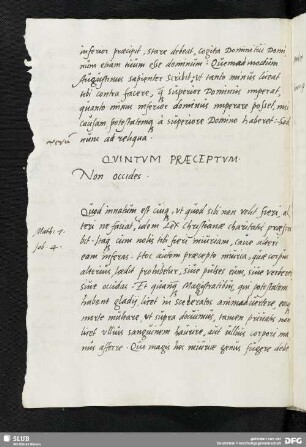 inferior præcipit, stare debeat, cogita Dominum Domi
num etiam tuum esse dominum. Quemadmodum
Augustinus sapienter scribit, ut tanto minus liceat
tibi contra facere, superior Dominus imperat,
quanto minus inferior dominus imperare posset,
causam potestatemq à superiore Domino haberet.
num ad reliqua.
QVINTVM PRÆCEPTVM.
Non occides.
Quod innatum est cuiq, ut quod sibi non velit fieri, al
teri ne faciat, idem Lex Christianæ charitatis præscri
bit. Itaq cum nolis tibi fieri iniuriam, cave alteri
eam inferas. Hoc autem præcepto iniuria, quæ corpus
alterius lædit prohibetur, sive pulses eum, sive verberes
sive occidas. Et quanq Magistratibus, qui potestatem
habent gladij, licet in sceleratos animadvertere, eosq
morte mulctare, ut supra docuimus, tamen privatis non
licet ullius sanguinem haurire, aut ullius corpori ma
nus afferre. Quo magis hoc iniuriæ genus fugere debe
Matth. 7.
Tob. 4.
SLUB